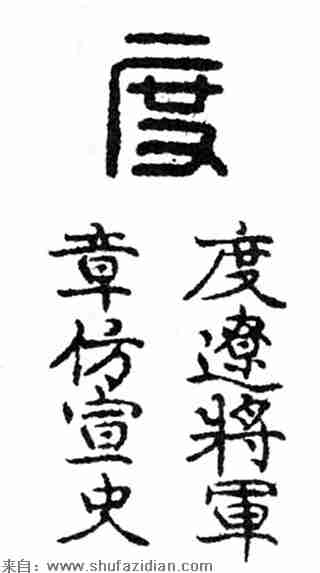 度
度遼將軍
章仿宣史
来自：www.shufazidian.com